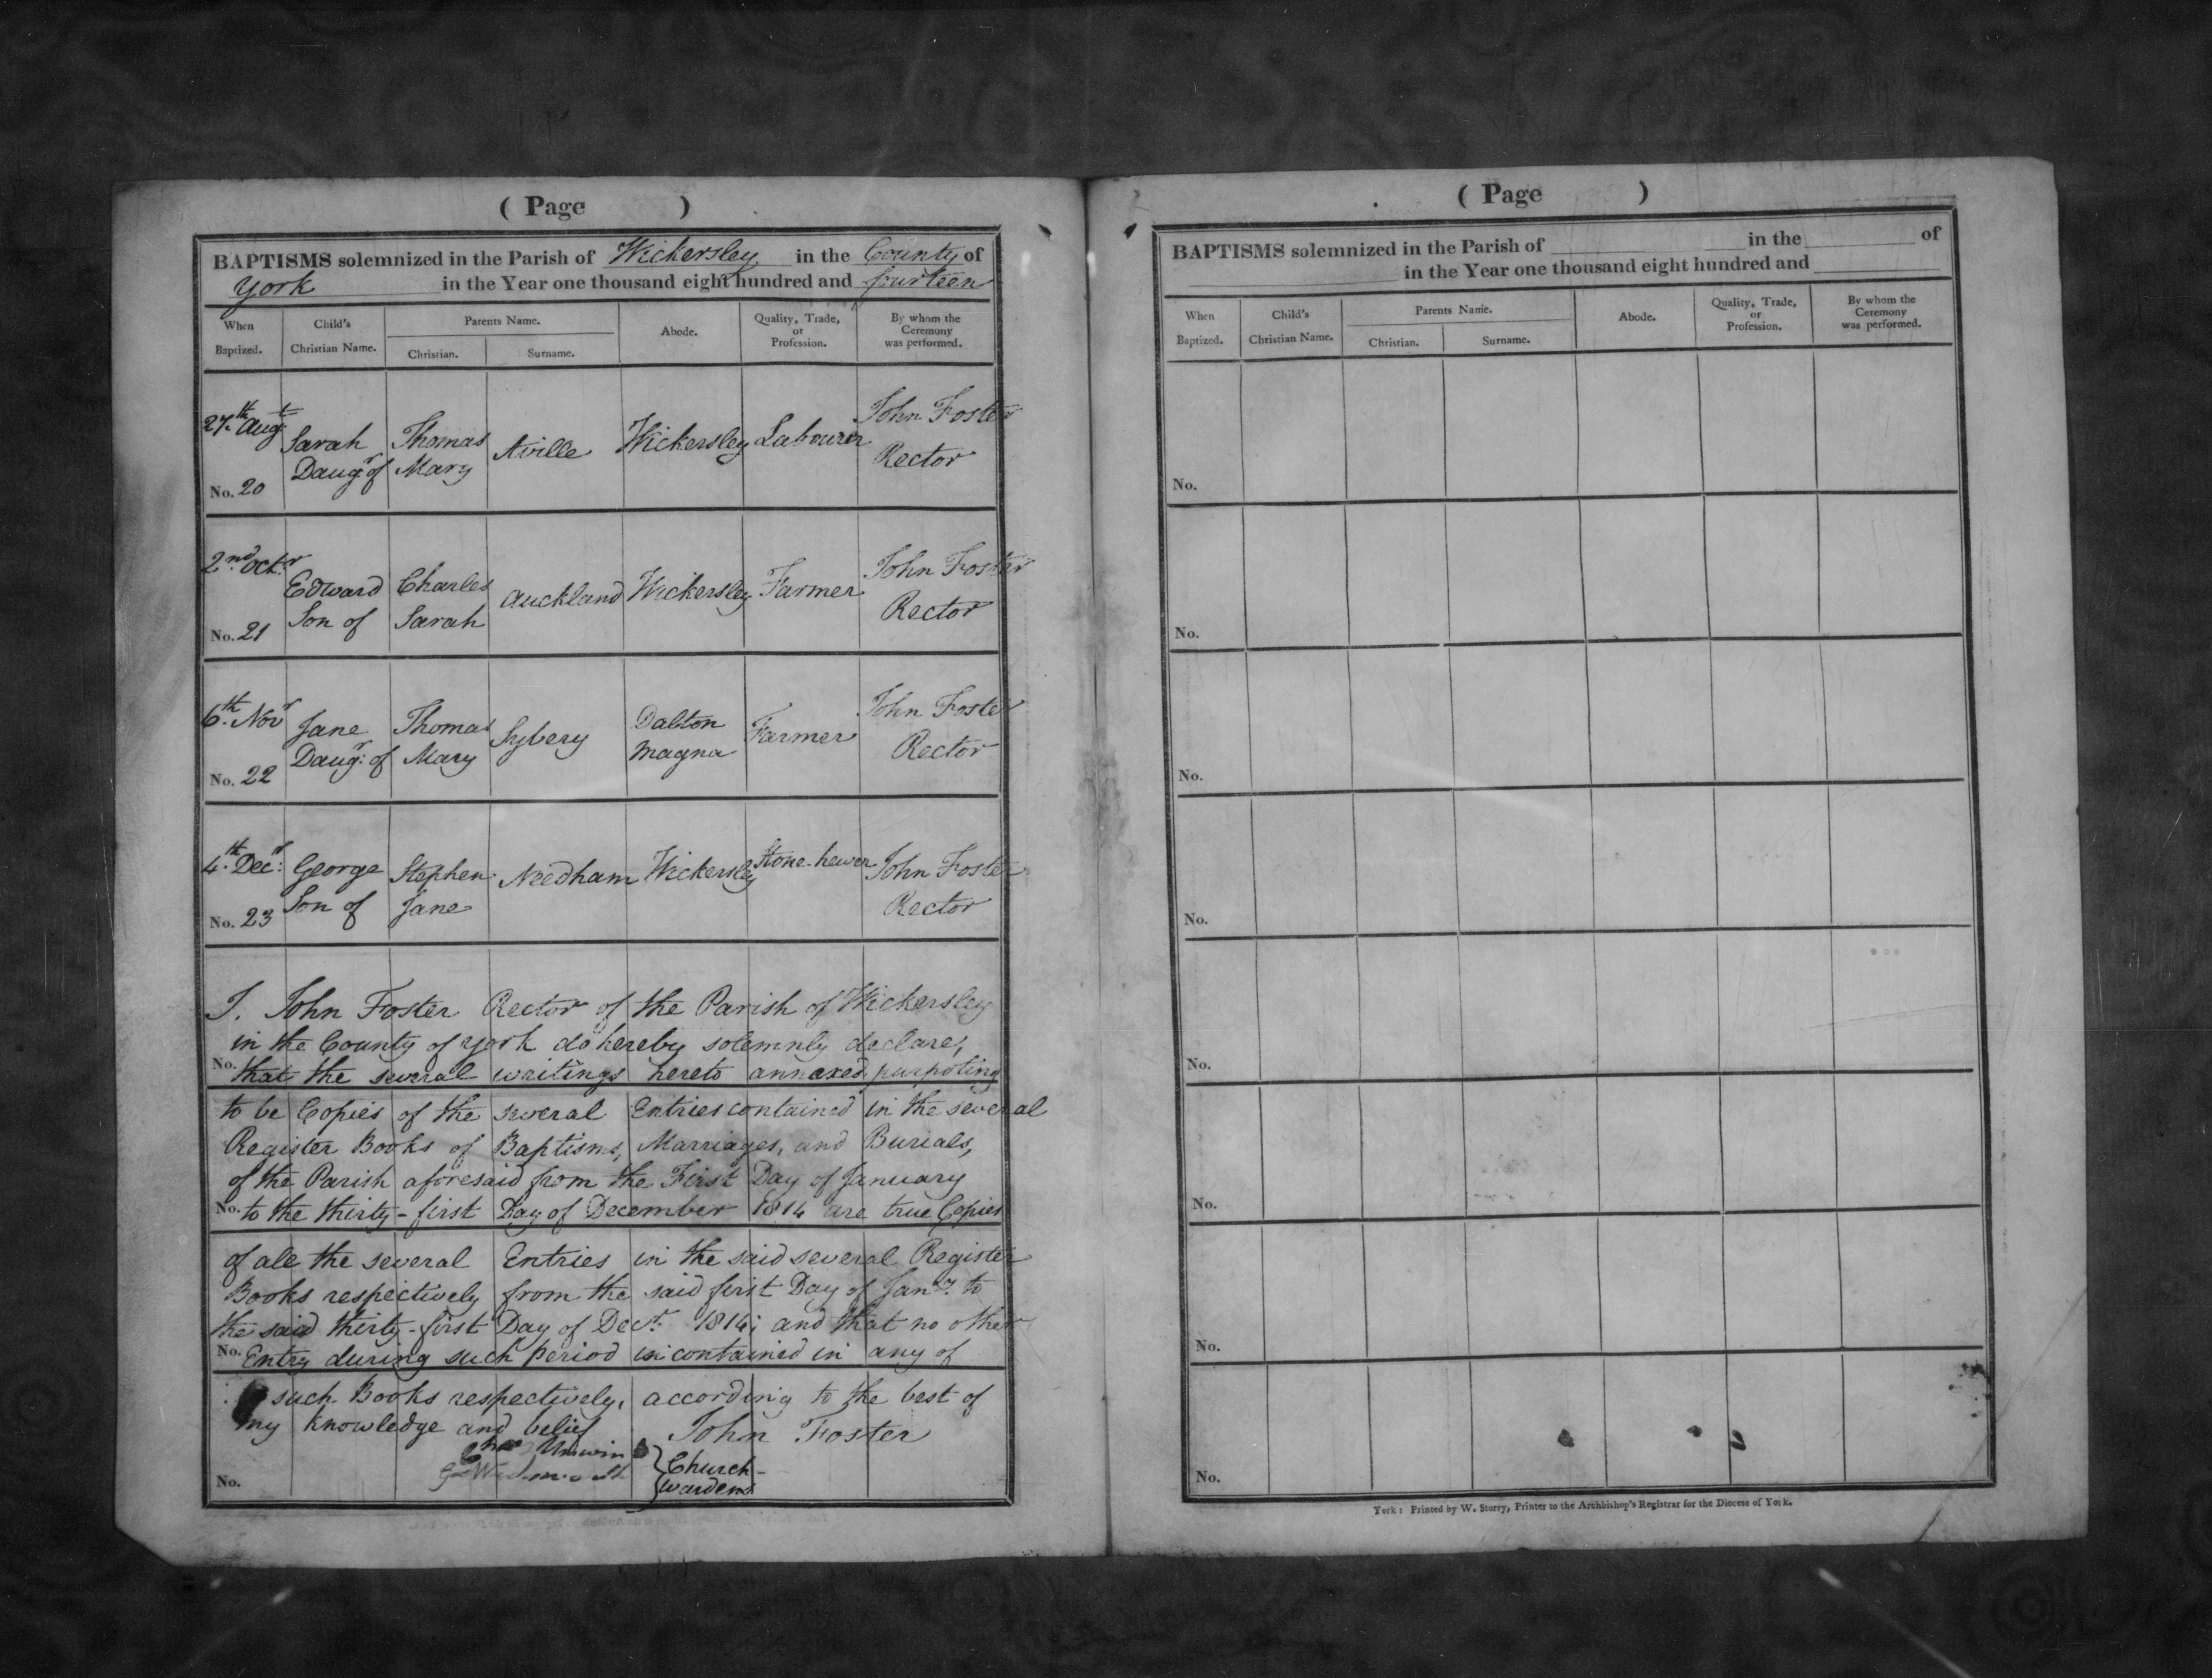 ( Page )
BAPTISMS solemnized in the Parish of Wickersley in the County of
York in the Year one thousand eight hundred and fourteen
When Baptized.
Child's Christian Name.
Parents Name.
Christian.
Surname.
Abode.
Quality, Trade, or Profession.
By whom the Ceremony was performed.
27th Augt
No. 20
Sarah
Daugr of
Thomas
Mary
Aville
Wickersley
Labourer
John Foster
Rector
2nd Octr
No. 21
Edward
Son of
Charles
Sarah
Auckland
Wickersley
Farmer
John Foster
Rector
6th Novr
No. 22
Jane
Daugr: of
Thomas
Mary
Sybery
Dalton
Magna
Farmer
John Foster
Rector
4th Decr:
No. 23
George
Son of
Stephen
Jane
Needham
Wickersley
Stone-hewer
John Foster
Rector
I. John Foster Rector of the Parish of Wickersley
in the County of York do hereby solemnly declare,
No. that the several writings hereto annexed, purpoting
to be Copies of the several Entries contained in the several
Register Books of Baptisms, Marriages, and Burials,
of the Parish aforesaid from the First Day of January
No. to the thirty-first Day of December 1814 are true Copies
of all the several Entries in the said several Register
Books respectively from the said first Day of Jany. to
the said thirty-first Day of Decr. 1814; and that no other
No. Entry during such period is contained in any of
such Books respectively, according to the best of
my knowledge and belief John Foster
Unwin
Church-
wardens
No.
( Page )
BAPTISMS solemnized in the Parish of in the of
in the Year one thousand eight hundred and
When Baptized.
Child's Christian Name.
Parents Name.
Christian.
Surname.
Abode.
Quality, Trade, or Profession.
By whom the Ceremony was performed.
No.
No.
No.
No.
No.
No.
No.
No.
York: Printed by W. Storry, Printer to the Archbishop's Registrar for the Diocese of York.